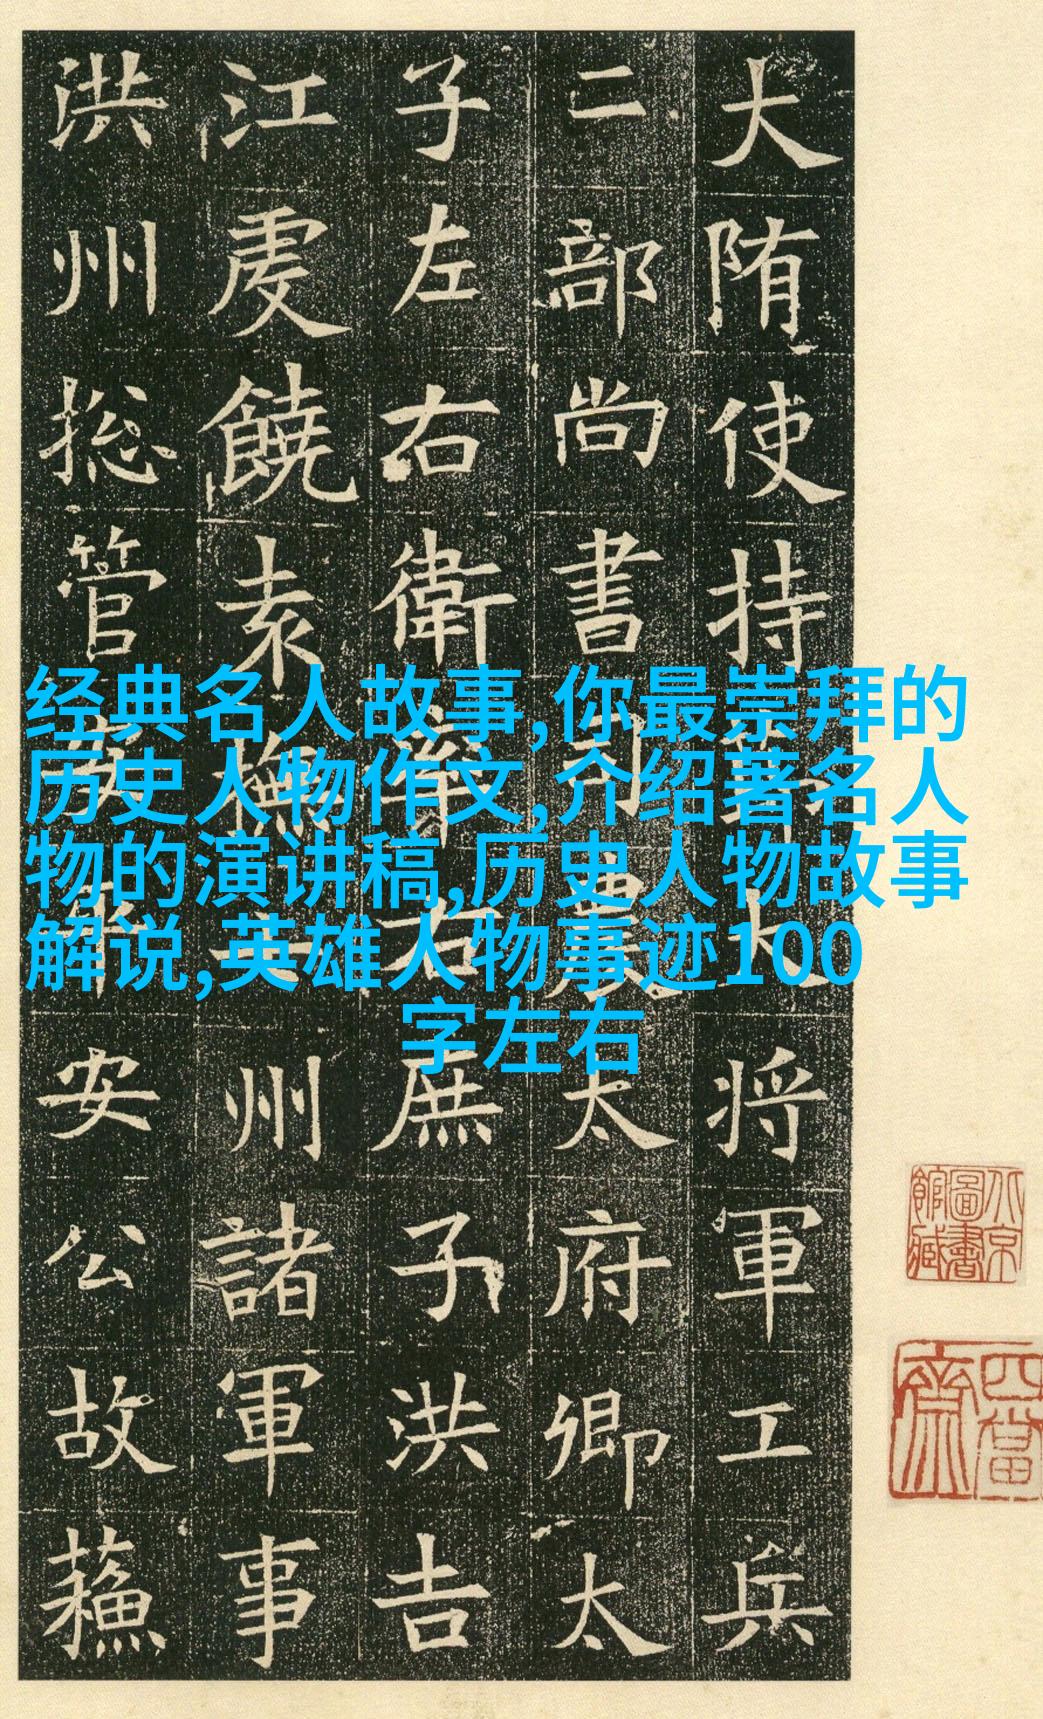 经典名人故事,你最崇拜的
历史人物作文,介绍著名人
物的演讲稿,历史人物故事
解说,英雄人物事迹100
字左右
大随使持
将軍工兵
二部尚書
太府卿太
子左右衛率右
庶子洪吉
江虔饒袁撫
州諸軍事
洪州総管
安公故蘓
北京圖書館藏
四當齋